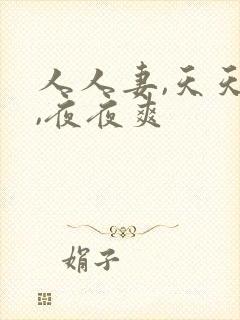 人人妻,天天
,夜夜爽
娟子